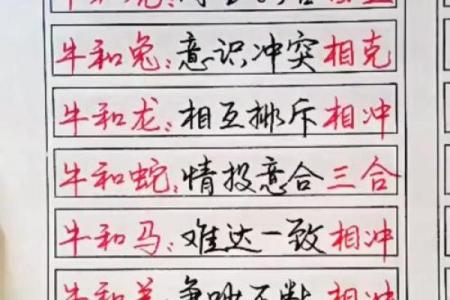 牛和兔：意识冲突相克
牛和龙：相互排斥相冲
牛和蛇：情投意合三合
牛和马：难达一致相冲
牛和羊：争吵不断相冲